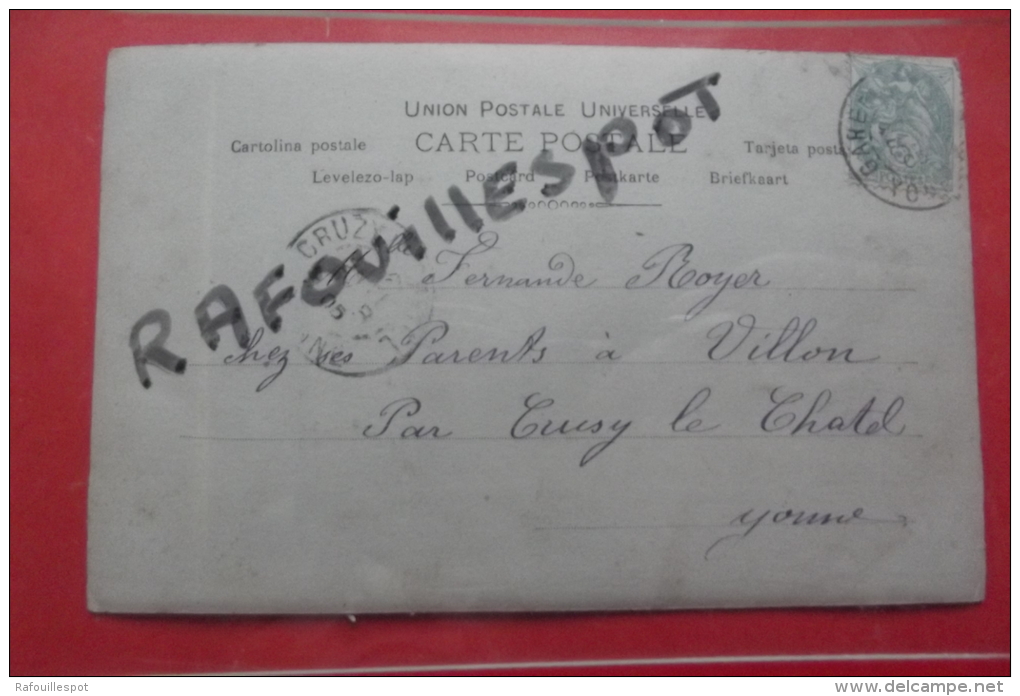 UNION POSTALE UNIVERSELLE
CARTE POSTALE
Cartolina postale
Tarjeta posta
Levelezo-lap Postcard Postkarte Briefkaart
RAFOUILLESPOT
CRUZY
05
GARE
Fernande Royer
chez ses Parents à Villon
Par Crusy le Chatel
yonne
Rafouillespot
www.delcampe.net